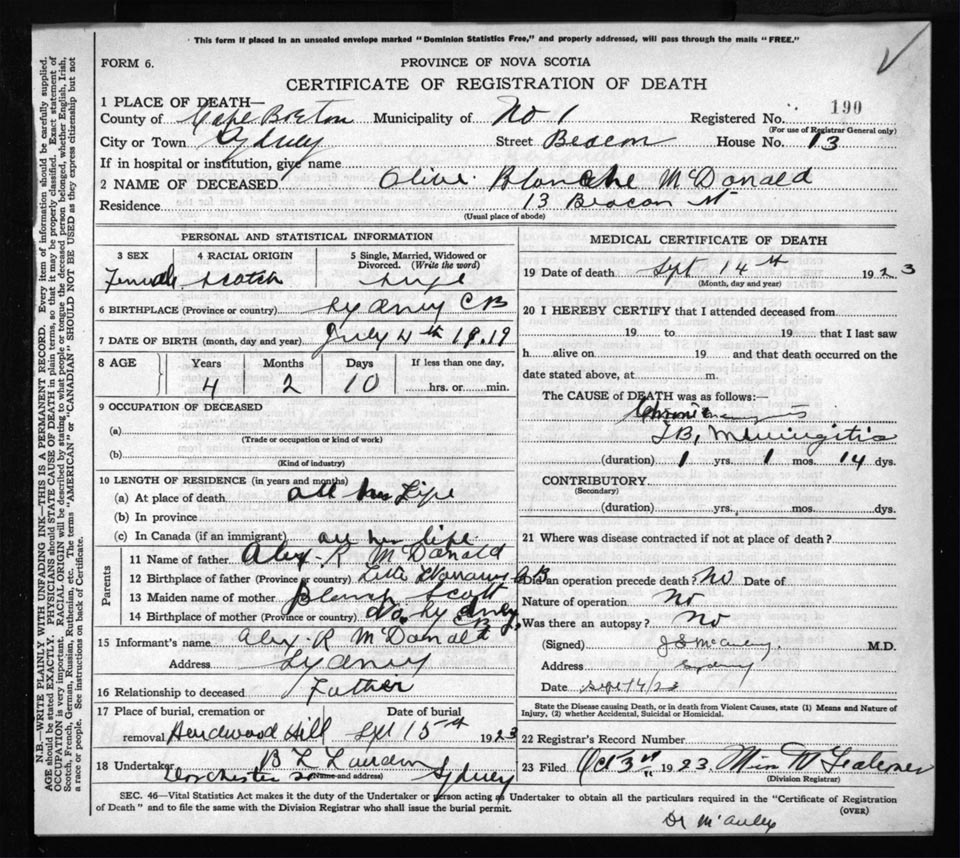 This form if placed in an unsealed envelope marked "Dominion Statistics Free," and properly addressed, will pass through the mails "FREE."
FORM 6.
PROVINCE OF NOVA SCOTIA
CERTIFICATE OF REGISTRATION OF DEATH
190
1 PLACE OF DEATH—
County of Cape Breton Municipality of No 1 Registered No.
(For use of Registrar General only)
City or Town Sydney Street Beacon House No. 13
If in hospital or institution, give name
2 NAME OF DECEASED Olive Blanche McDonald
Residence 13 Beacon St
(Usual place of abode)
PERSONAL AND STATISTICAL INFORMATION
3 SEX 4 RACIAL ORIGIN 5 Single, Married, Widowed or Divorced. (Write the word)
Female Scotch
6 BIRTHPLACE (Province or country) Sydney CB
7 DATE OF BIRTH (month, day and year) July 4th 1919
8 AGE Years Months Days If less than one day,
4 2 10 hrs. or min.
9 OCCUPATION OF DECEASED
(a)
(Trade or occupation or kind of work)
(b)
(Kind of industry)
10 LENGTH OF RESIDENCE (in years and months)
(a) At place of death all her Life
(b) In province
(c) In Canada (if an immigrant) all her life
Parents
11 Name of father Alex. R McDonald
12 Birthplace of father (Province or country) Little Narrows CB
13 Maiden name of mother Blanch Scott
14 Birthplace of mother (Province or country) No. Sydney CB
15 Informant's name Alex. R McDonald
Address Sydney
16 Relationship to deceased Father
17 Place of burial, cremation or removal Date of burial
Hardwood Hill Sept 15th 1923
18 Undertaker B L
(Name and address)
Dorchester St Sydney
MEDICAL CERTIFICATE OF DEATH
19 Date of death Sept 14th 1923
(Month, day and year)
20 I HEREBY CERTIFY that I attended deceased from
19 to 19 that I last saw
h alive on 19 and that death occurred on the
date stated above, at m.
The CAUSE OF DEATH was as follows:—
Chronic
TB, Meningitis
(duration) 1 yrs. 1 mos. 14 dys.
CONTRIBUTORY
(Secondary)
(duration) yrs. mos. dys.
21 Where was disease contracted if not at place of death?
Did an operation precede death? No Date of
Nature of operation No
Was there an autopsy? No
(Signed) J S McAuley. M.D.
Address Sydney
Date Sept 14/23
State the Disease causing Death, or in death from Violent Causes, state (1) Means and Nature of
Injury, (2) whether Accidental, Suicidal or Homicidal.
22 Registrar's Record Number
23 Filed Oct 3rd 1923. Miss W Falconer
(Division Registrar)
SEC. 46—Vital Statistics Act makes it the duty of the Undertaker or person acting as Undertaker to obtain all the particulars required in the "Certificate of Registration
of Death" and to file the same with the Division Registrar who shall issue the burial permit.
(OVER)
Dr McAuley
N.B.—WRITE PLAINLY WITH UNFADING INK—THIS IS A PERMANENT RECORD. Every item of information should be carefully supplied.
AGE should be stated EXACTLY. PHYSICIANS should STATE CAUSE OF DEATH in plain terms, so that it may be properly classified. Exact statement of
OCCUPATION is very important. RACIAL ORIGIN will be described by stating to what people or tongue the deceased person belonged, whether English, Irish,
Scotch, French, German, Russian, Ruthenian, etc. The terms "AMERICAN" or "CANADIAN" SHOULD NOT BE USED as they express citizenship but not
a race or people. See instructions on back of Certificate.